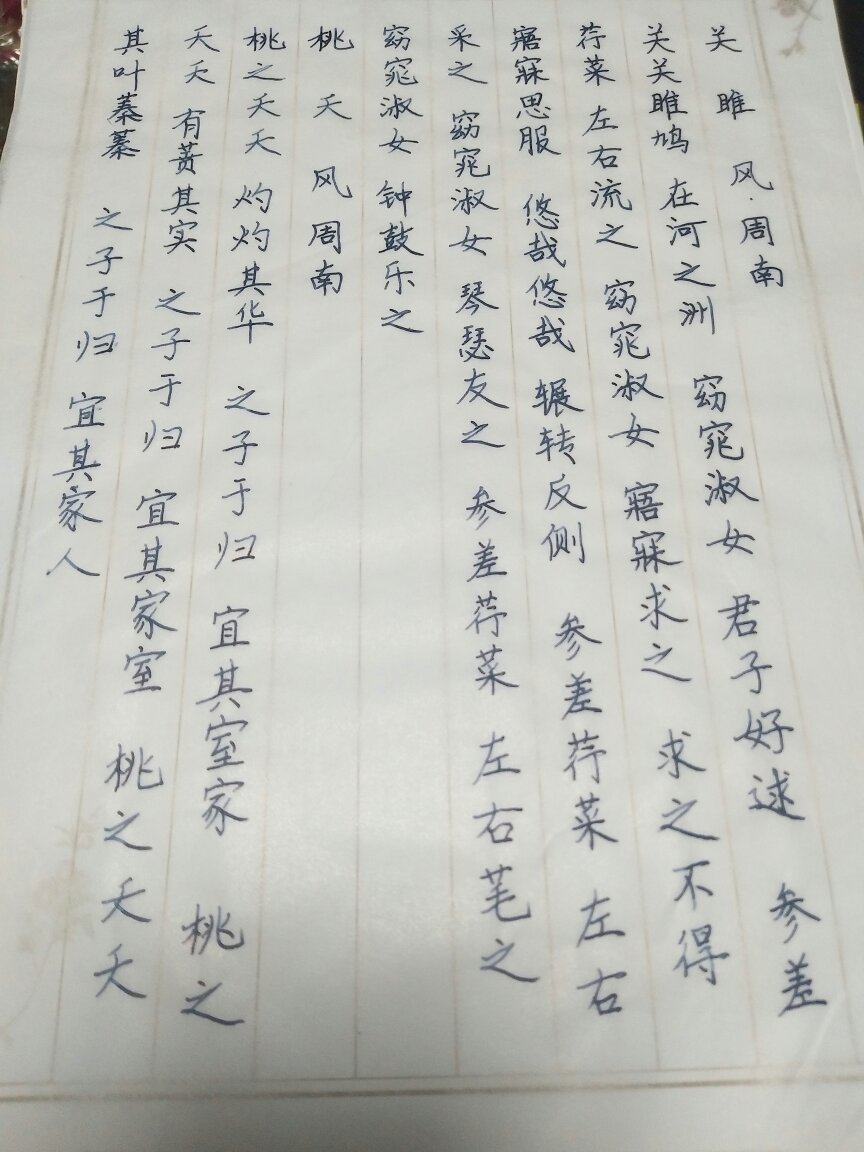 关 雎 风·周南
关关雎鸠 在河之洲 窈窕淑女 君子好逑 参差
荇菜 左右流之 窈窕淑女 寤寐求之 求之不得
寤寐思服 悠哉悠哉 辗转反侧 参差荇菜 左右
采之 窈窕淑女 琴瑟友之 参差荇菜 左右芼之
窈窕淑女 钟鼓乐之
桃 夭 风周南
桃之夭夭 灼灼其华 之子于归 宜其室家 桃之
夭夭 有蕡其实 之子于归 宜其家室 桃之夭夭
其叶蓁蓁 之子于归 宜其家人